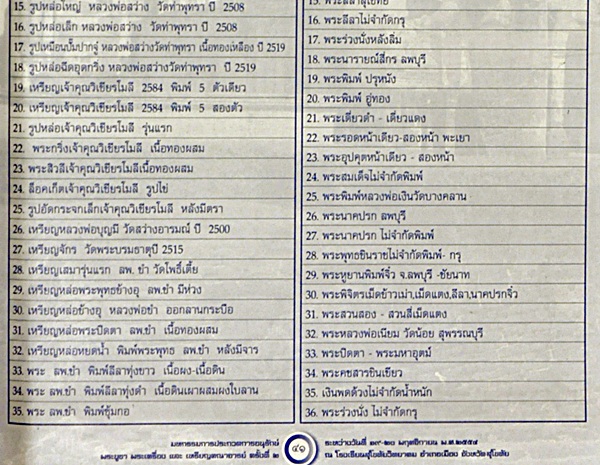 15. รูปหล่อใหญ่ หลวงพ่อสว่าง วัดท่าพุทรา ปี 2508
16. รูปหล่อเล็ก หลวงพ่อสว่าง วัดท่าพุทรา ปี 2508
17. รูปเหมือนปั๊มปากจู๋ หลวงพ่อสว่างวัดท่าพุทรา เนื้อทองเหลือง ปี 2519
18. รูปหล่อฉีดอุดกริ่ง หลวงพ่อสว่างวัดท่าพุทรา ปี 2519
19. เหรียญเจ้าคุณวิเชียรโมลี 2584 พิมพ์ 5 ตัวเดียว
20. เหรียญเจ้าคุณวิเชียรโมลี 2584 พิมพ์ 5 สองตัว
21. รูปหล่อเจ้าคุณวิเชียรโมลี รุ่นแรก
22. พระกริ่งเจ้าคุณวิเชียรโมลี เนื้อทองผสม
23. พระสิวลีเจ้าคุณวิเชียรโมลีเนื้อทองผสม
24. ล็อคเก็ตเจ้าคุณวิเชียรโมลี รูปไข่
25. รูปอัดกระจกเล็กเจ้าคุณวิเชียรโมลี หลังมีตรา
26. เหรียญหลวงพ่อบุญมี วัดสว่างอารมณ์ ปี 2500
27. เหรียญจักร วัดพระบรมธาตุปี 2515
28. เหรียญเสมารุ่นแรก ลพ.ขำ วัดโพธิ์เตี้ย
29. เหรียญหล่อพระพุทธข้างอุ ลพ.ขำ มีห่วง
30. เหรียญหล่อข้างอุ หลวงพ่อขำ ออกลานกระบือ
31. เหรียญหล่อพระปิดตา ลพ.ขำ เนื้อทองผสม
32. เหรียญหล่อหยดน้ำ พิมพ์พระพุทธ ลพ.ขำ หลังมีจาร
33. พระ ลพ.ขำ พิมพ์ลีลาทุ่งขาว เนื้อผง-เนื้อดิน
34. พระ ลพ.ขำ พิมพ์ลีลาทุ่งดำ เนื้อดินเผาผสมผงใบลาน
35. พระ ลพ.ขำ พิมพ์ซุ้มกอ
16. พระลีลาไม่จำกัดกรุ
17. พระร่วงนั่งหลังลิ่ม
18. พระนารายณ์สี่กร ลพบุรี
19. พระพิมพ์ ปรุหนัง
20. พระพิมพ์ อู่ทอง
21. พระเดี่ยวดำ - เดี่ยวแดง
22. พระรอดหน้าเดียว-สองหน้า พะเยา
23. พระอุปคุตหน้าเดียว - สองหน้า
24. พระสมเด็จไม่จำกัดพิมพ์
25. พระพิมพ์หลวงพ่อเงินวัดบางคลาน
26. พระนาคปรก ลพบุรี
27. พระนาคปรก ไม่จำกัดพิมพ์
28. พระพุทธชินราชไม่จำกัดพิมพ์- กรุ
29. พระหูยานพิมพ์จิ๋ว จ.ลพบุรี -ชัยนาท
30. พระพิจิตรเม็ดข้าวเม่า,เม็ดแตง,ลีลา,นาคปรกจิ๋ว
31. พระสวนสอง - สวนสี่เม็ดแตง
32. พระหลวงพ่อเนียม วัดน้อย สุพรรณบุรี
33. พระปิดตา - พระมหาอุตม์
34. พระคชสารชินเขียว
35. เงินพดด้วงไม่จำกัดน้ำหนัก
36. พระร่วงนั่ง ไม่จำกัดกรุ
มหกรรมการประกวดการอนุรักษ์
พระบูชา พระเครื่อง และ เหรียญคณาจารย์ ครั้งที่ ๒
๔๑
ระหว่างวันที่ ๑๙-๒๐ พฤศจิกายน พ.ศ.๒๕๕๔
ณ โรงเรียนสุโขทัยวิทยาคม อำเภอเมือง จังหวัดสุโขทัย